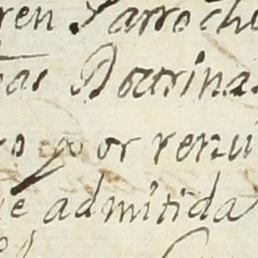 ren Parroch
as Doctrinas
ro por renu
e admitida